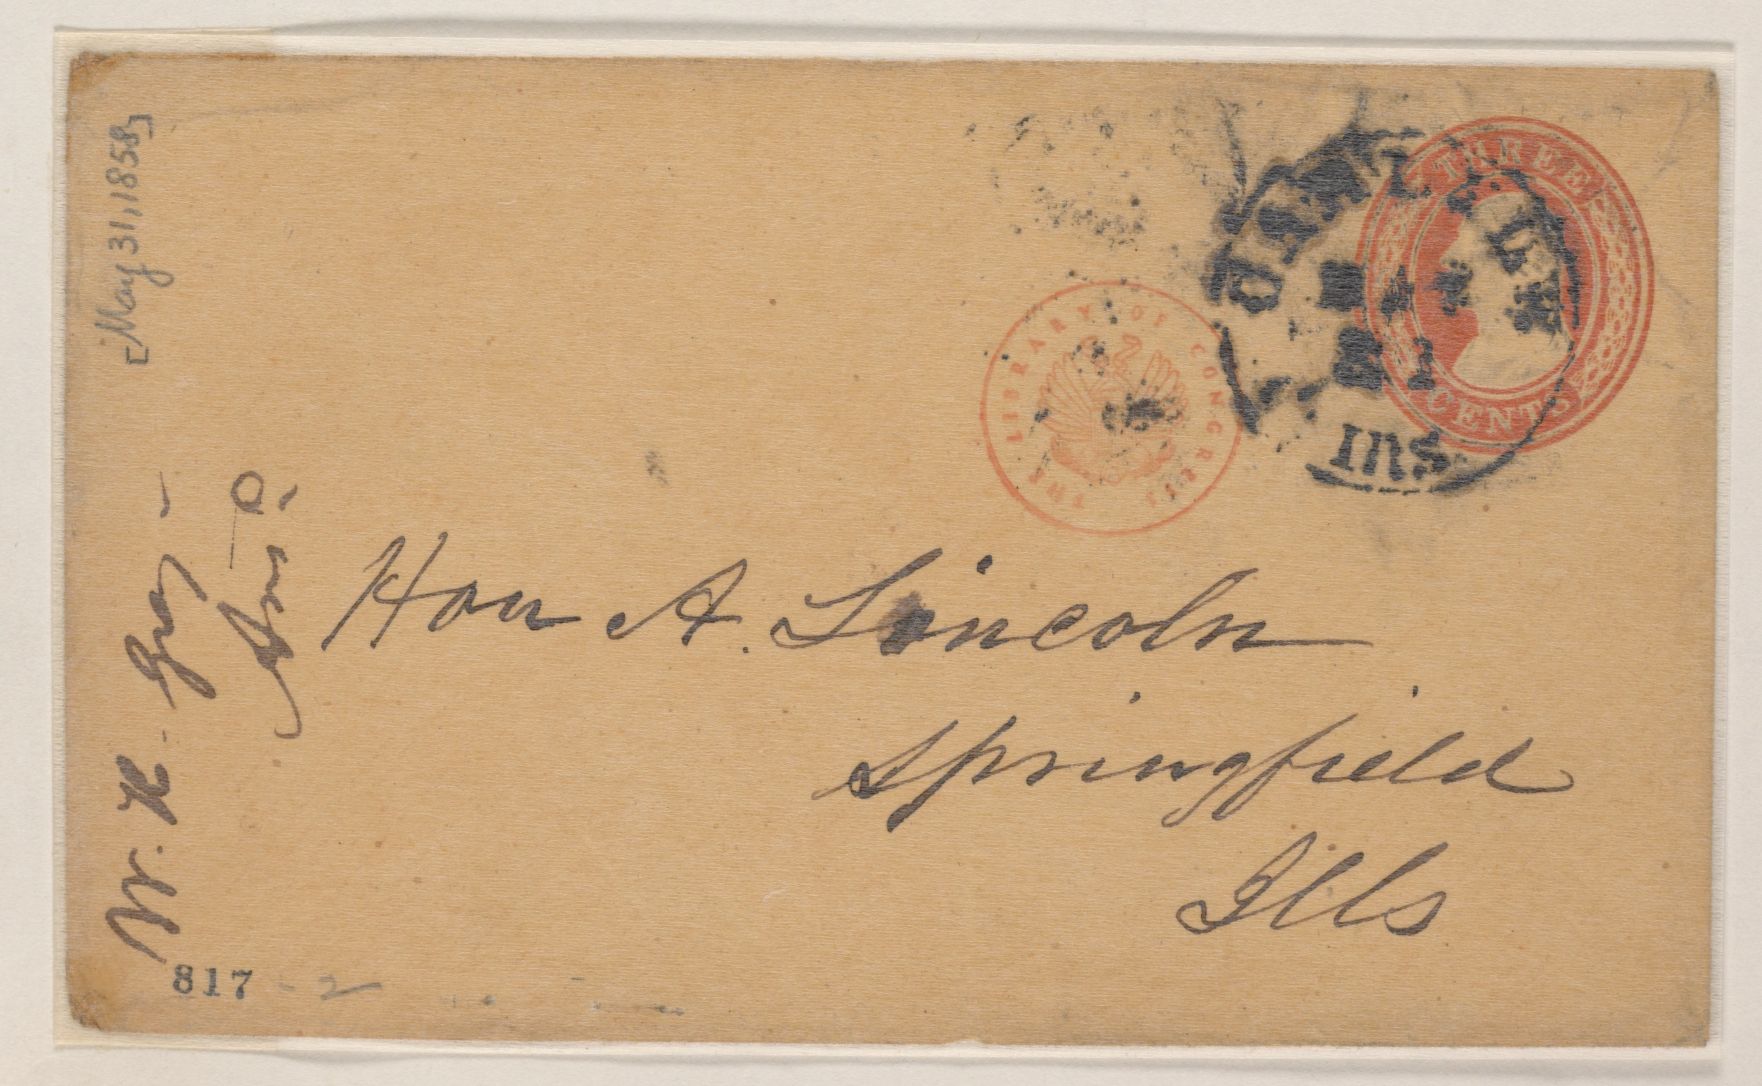 [May 31, 1858]
W. H. Gray -
Ans'd.
THREE
CENTS
MAY
31
Ills
THE LIBRARY OF CONGRESS
Hon A. Lincoln
Springfield
Ills
817 - 2